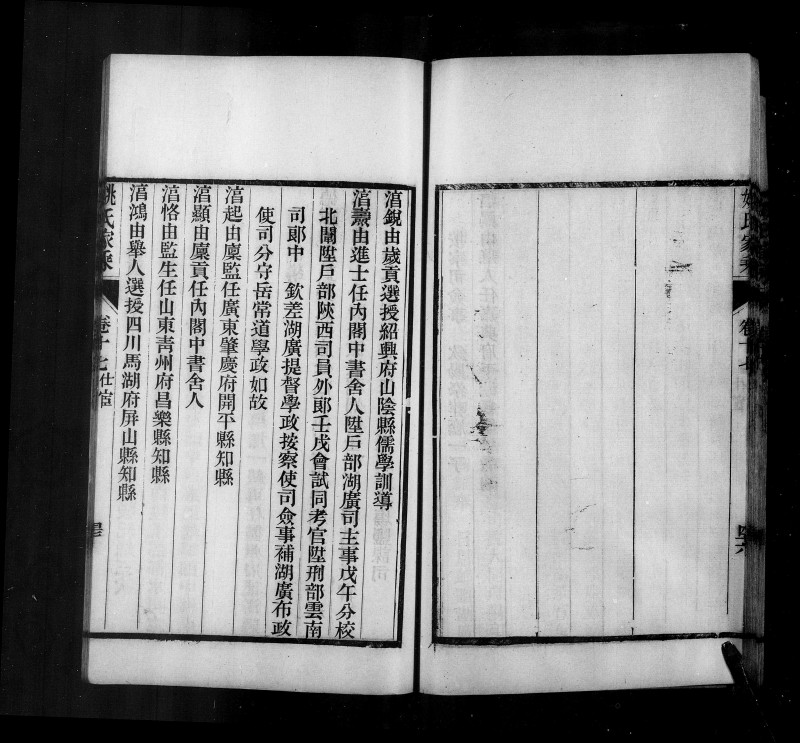 姚氏家乘
卷十七
仕宦
淯銳由歲貢選授紹興府山陰縣儒學訓導
淯燾由進士任內閣中書舍人陞戶部湖廣司主事戊午分校
北闈陞戶部陝西司員外郎壬戌會試同考官陞刑部雲南
司郎中 欽差湖廣提督學政按察使司僉事補湖廣布政
使司分守岳常道學政如故
淯起由廩監任廣東肇慶府開平縣知縣
淯顯由廩貢任內閣中書舍人
淯恪由監生任山東靑州府昌樂縣知縣
淯鴻由舉人選授四川馬湖府屏山縣知縣
姚氏家乘
卷十七
仕宦